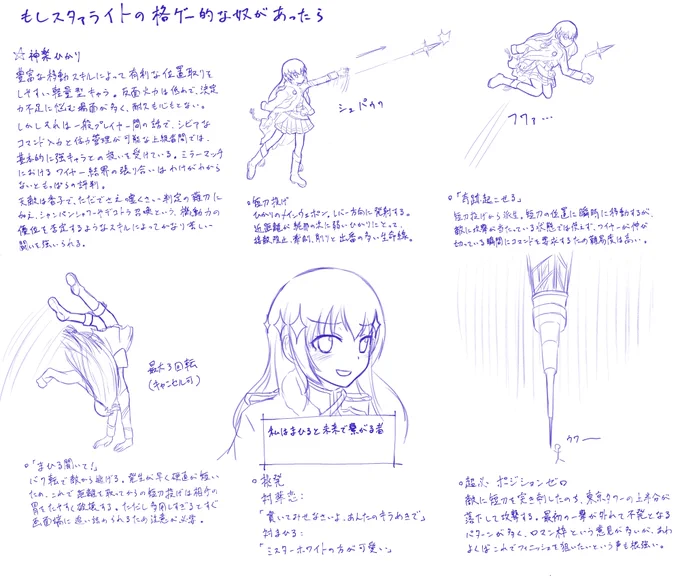 もしスタァライトの格ゲー的な奴があったら
☆神楽ひかり
豊富な移動スキルによって有利な位置取りを
しやすい軽量型キャラ。反面火力は低めで、決定
力不足に悩む場面が多く、耐久も心もとない。
しかしそれは一般プレイヤー間の話で、シビアな
コマンド入力と位置管理が可能な上級者間では、
基本的に強キャラとの扱いを受けている。ミラーマッチ
におけるワイヤー結界の張り合いはわけがわから
ないともっぱらの評判。
天敵は香子で、ただでさえ嫌くさい判定の薙刀に
加え、シャンパン
という、機動力の
優位を否定するようなスキルによってかなり苦しい
闘いを強いられる。
シュパァッ
○短刀投げ
ひかりのメインウェポン。レバー方向に発射する。
近距離が
弱いひかりにとって、
接敵阻止、牽制、削りと出番の多い生命線。
フワァ…
○「奇跡起こせる」
短刀投げから派生。短刀の位置に瞬時に移動するが、
敵に攻撃が当たっている状態では使えず、ワイヤーが伸び
切っている瞬間にコマンドを要求するため難易度は高い。
最大3回転
(キャンセル可)
○「まひる聞いて!」
バク転で敵から逃げる。発生が早く硬直が短い
ため、これで距離を取ってからの短刀投げは相手の
胃をたやすく破壊する。ただし多用しすぎるとすぐ
画面端に追い詰められるため注意が必要。
私はまひると未来で繋がる者
○挑発
対華恋:
「貫いてみせなさいよ、あんたのキラめきで」
対まひる:
「ミスターホワイトの方が可愛い。」
ウワー
○超必 ポジションゼロ
敵に短刀を突き刺したのち、東京タワーの上半分が
落下して攻撃する。最初の一撃が外れて不発となる
パターンが多く、ロマン枠という意見が多いが、あわ
よくばこれでフィニッシュを狙いたいという声も根強い。